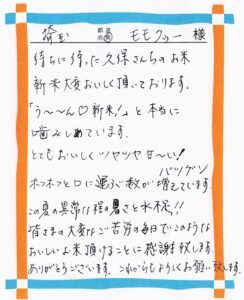 埼玉 都道府県 モモクリー 様
待ちに待った久保さんちのお米
新米大変おいしく頂いております。
「う〜〜ん♡新米!」と本当に
噛みしめています。
とてもおいしくツヤツヤ甘〜い!
バツグン
ホンホンと口に運ぶ数が増えています
この夏の異常な程の暑さと水不足!!
皆さまの大変なご苦労の毎日でこのような
おいしいお米頂けることに感謝致します。
ありがとうございます。これからもよろしくお願い致します。